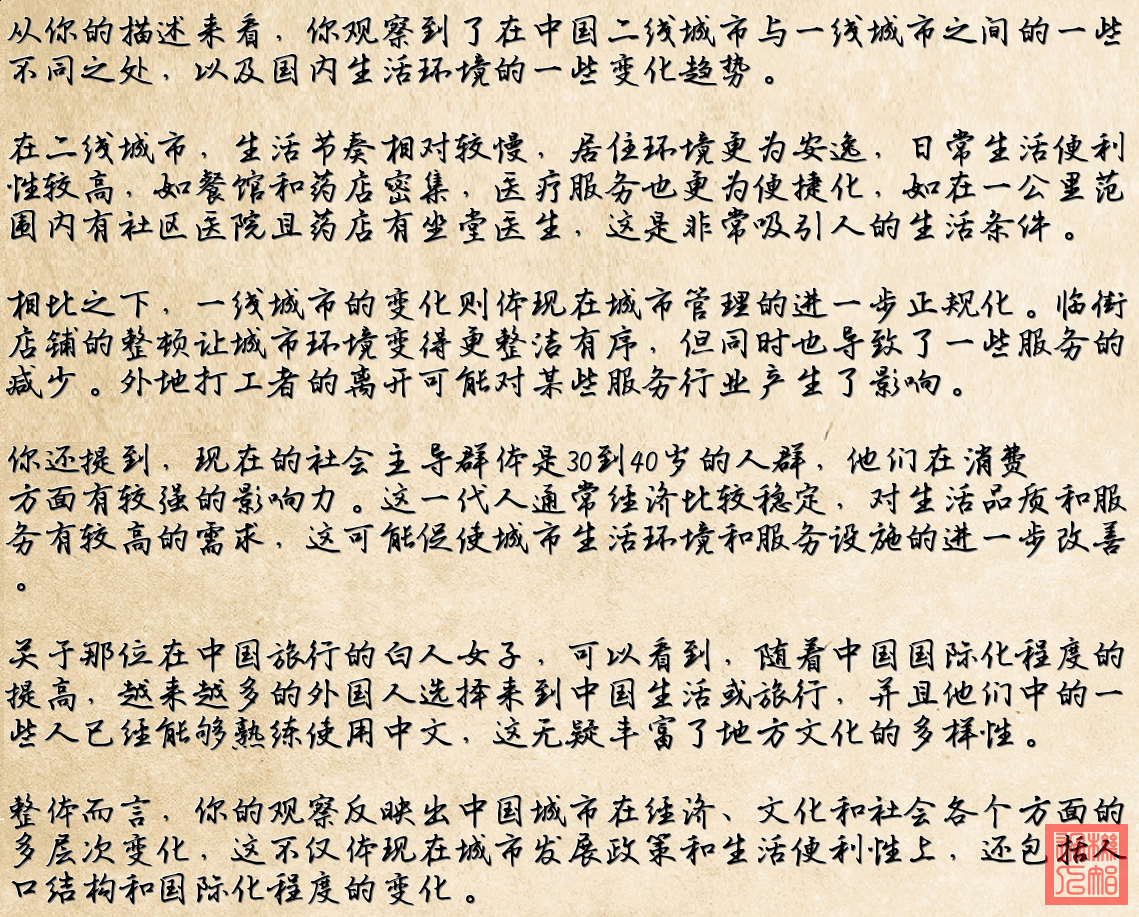 从你的描述来看，你观察到了在中国二线城市与一线城市之间的一些
不同之处，以及国内生活环境的一些变化趋势。
在二线城市，生活节奏相对较慢，居住环境更为安逸，日常生活便利
性较高，如餐馆和药店密集，医疗服务也更为便捷化，如在一公里范
围内有社区医院且药店有坐堂医生，这是非常吸引人的生活条件。
相比之下，一线城市的变化则体现在城市管理的进一步正规化。临街
店铺的整顿让城市环境变得更整洁有序，但同时也导致了一些服务的
减少。外地打工者的离开可能对某些服务行业产生了影响。
你还提到，现在的社会主导群体是30到40岁的人群，他们在消费
方面有较强的影响力。这一代人通常经济比较稳定，对生活品质和服
务有较高的需求，这可能促使城市生活环境和服务设施的进一步改善
。
关于那位在中国旅行的白人女子，可以看到，随着中国国际化程度的
提高，越来越多的外国人选择来到中国生活或旅行，并且他们中的一
些人已经能够熟练使用中文，这无疑丰富了地方文化的多样性。
整体而言，你的观察反映出中国城市在经济、文化和社会各个方面的
多层次变化，这不仅体现在城市发展政策和生活便利性上，还包括人
口结构和国际化程度的变化。